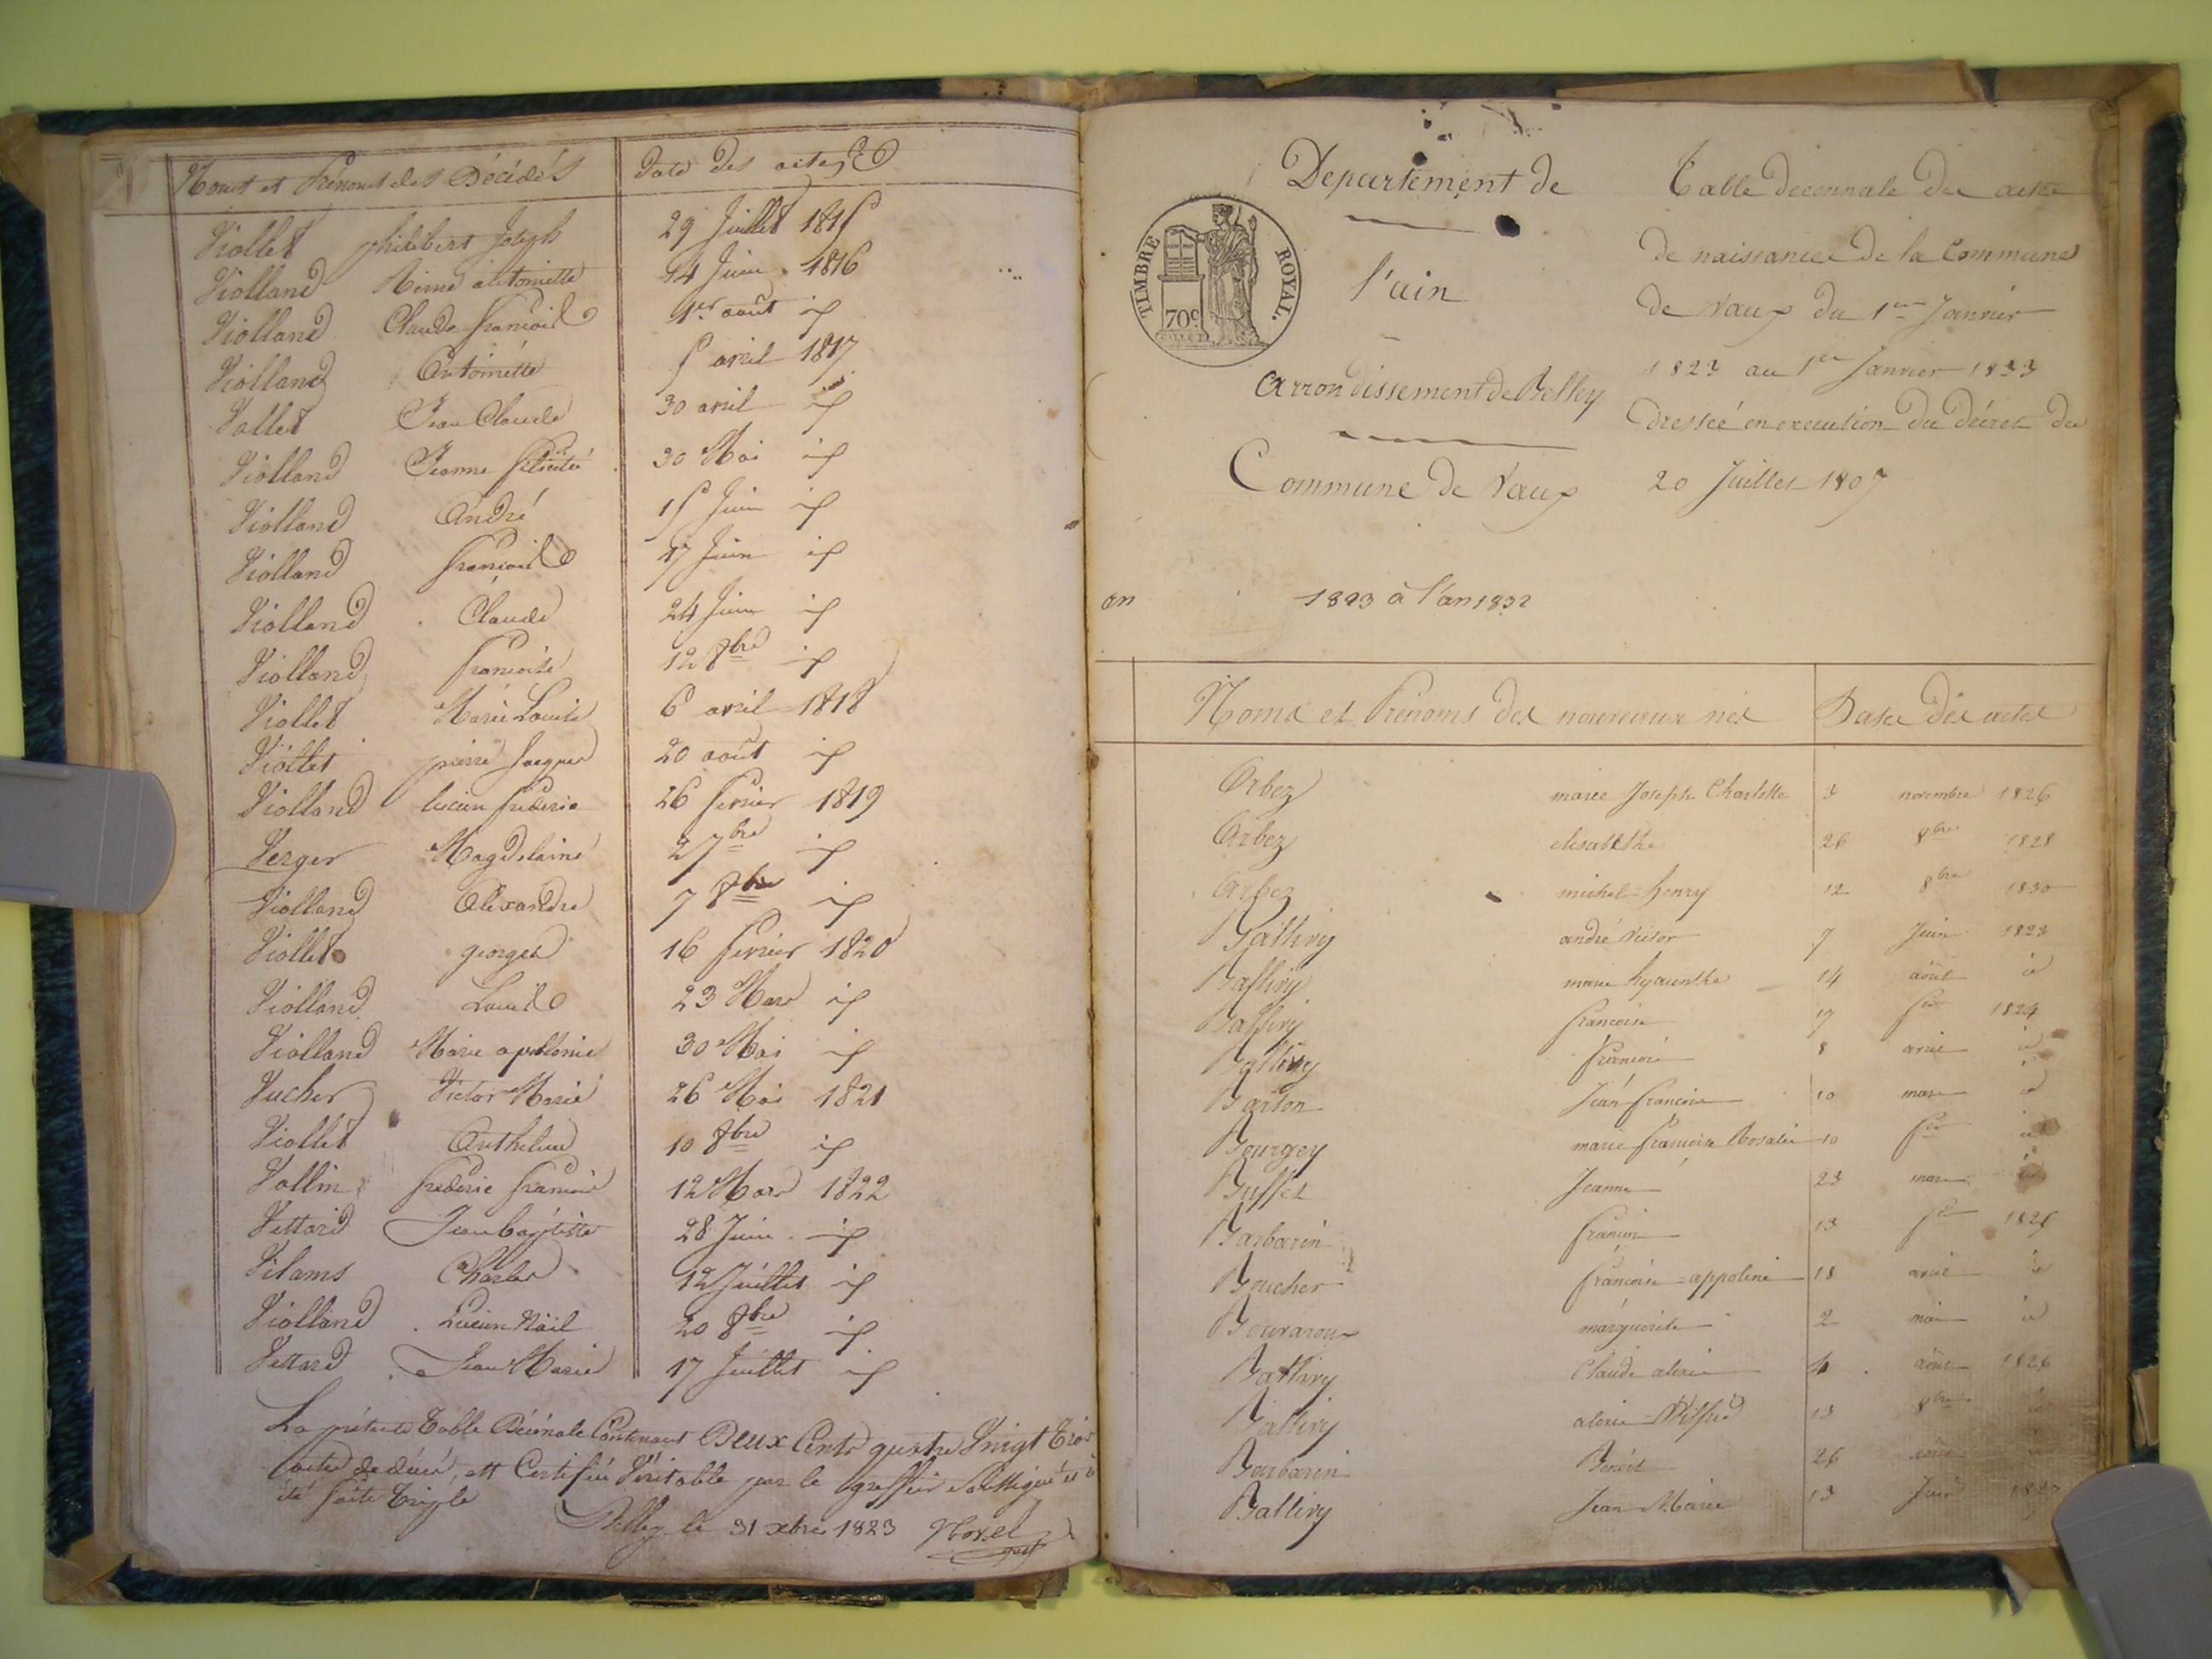 Noms et Prénoms des Décédés Date des actes
Viollet philibert Joseph 29 Juillet 1815
Violland antoinette 14 Juin 1816
Violland Claude françois 1er août id
Violland Antoinette 5 avril 1817
Vallet Jean Claude 30 avril id
Violland Jeanne félicité 30 Mai id
Violland André 15 Juin id
Violland françois 17 Juin id
Violland Claude 24 Juin id
Violland françoise 12 8bre id
Viollet Marie Louise 6 avril 1818
Viollet pierre Jacques 20 août id
Violland lucien frederic 26 fevrier 1819
Verger Magdelaine 2 7bre id
Violland Alexandre 7 8bre id
Viollet georges 16 fevrier 1820
Violland Louis 23 Mars id
Violland Marie apollonie 30 Mai id
Vucher Victor Marie 26 Mai 1821
Viollet Anthelme 10 8bre id
Vollin frederic françois 12 Mars 1822
Vettard Jean baptiste 28 Juin id
Vilams Charles 12 Juillet id
Violland Lucien Noël 20 8bre id
Vettard Jean Marie 17 Juillet id
La présente Table Décénale Contenant Deux Cents quatre Vingt trois
actes de décès, est Certifiée Véritable par le greffier Soussigné et a
été faite triple
Belley le 31 xbre 1823 Morel
Departement de
l'ain
TIMBRE ROYAL.
70c
Arrondissement de Belley
Commune de Vaux
Table decennale des actes
de naissance de la Commune
de Vaux du 1er Janvier
1823 au 1er Janvier 1833
Dressée en execution du décret du
20 Juillet 1807
an 1823 à l'an 1832
Noms et Prénoms des nouveaux nés Date des actes
Arbez marie Joseph Charlotte 3 novembre 1826
Arbez elisabethe 26 8bre 1828
Arbez michel henry 12 8bre 1830
Ballivy andré victor 7 Juin 1823
Ballivy marie hyacinthe 14 août id
Ballivy françoise 17 fer 1824
Ballivy françois 8 avril id
Barton Jean françois 10 mars id
Bourgey marie françoise Rosalie 10 fer id
Buffet Jeanne 23 mars id
Barbarin françois 13 fer 1825
Boucher françoise appoline 18 avril id
Bouvarous marguerite 2 mai id
Ballivy Claude alexis 4 août 1826
Ballivy alexis 13 8bre id
Barbarin Benoit 26 id
Ballivy Jean Marie 13 Juin 1827